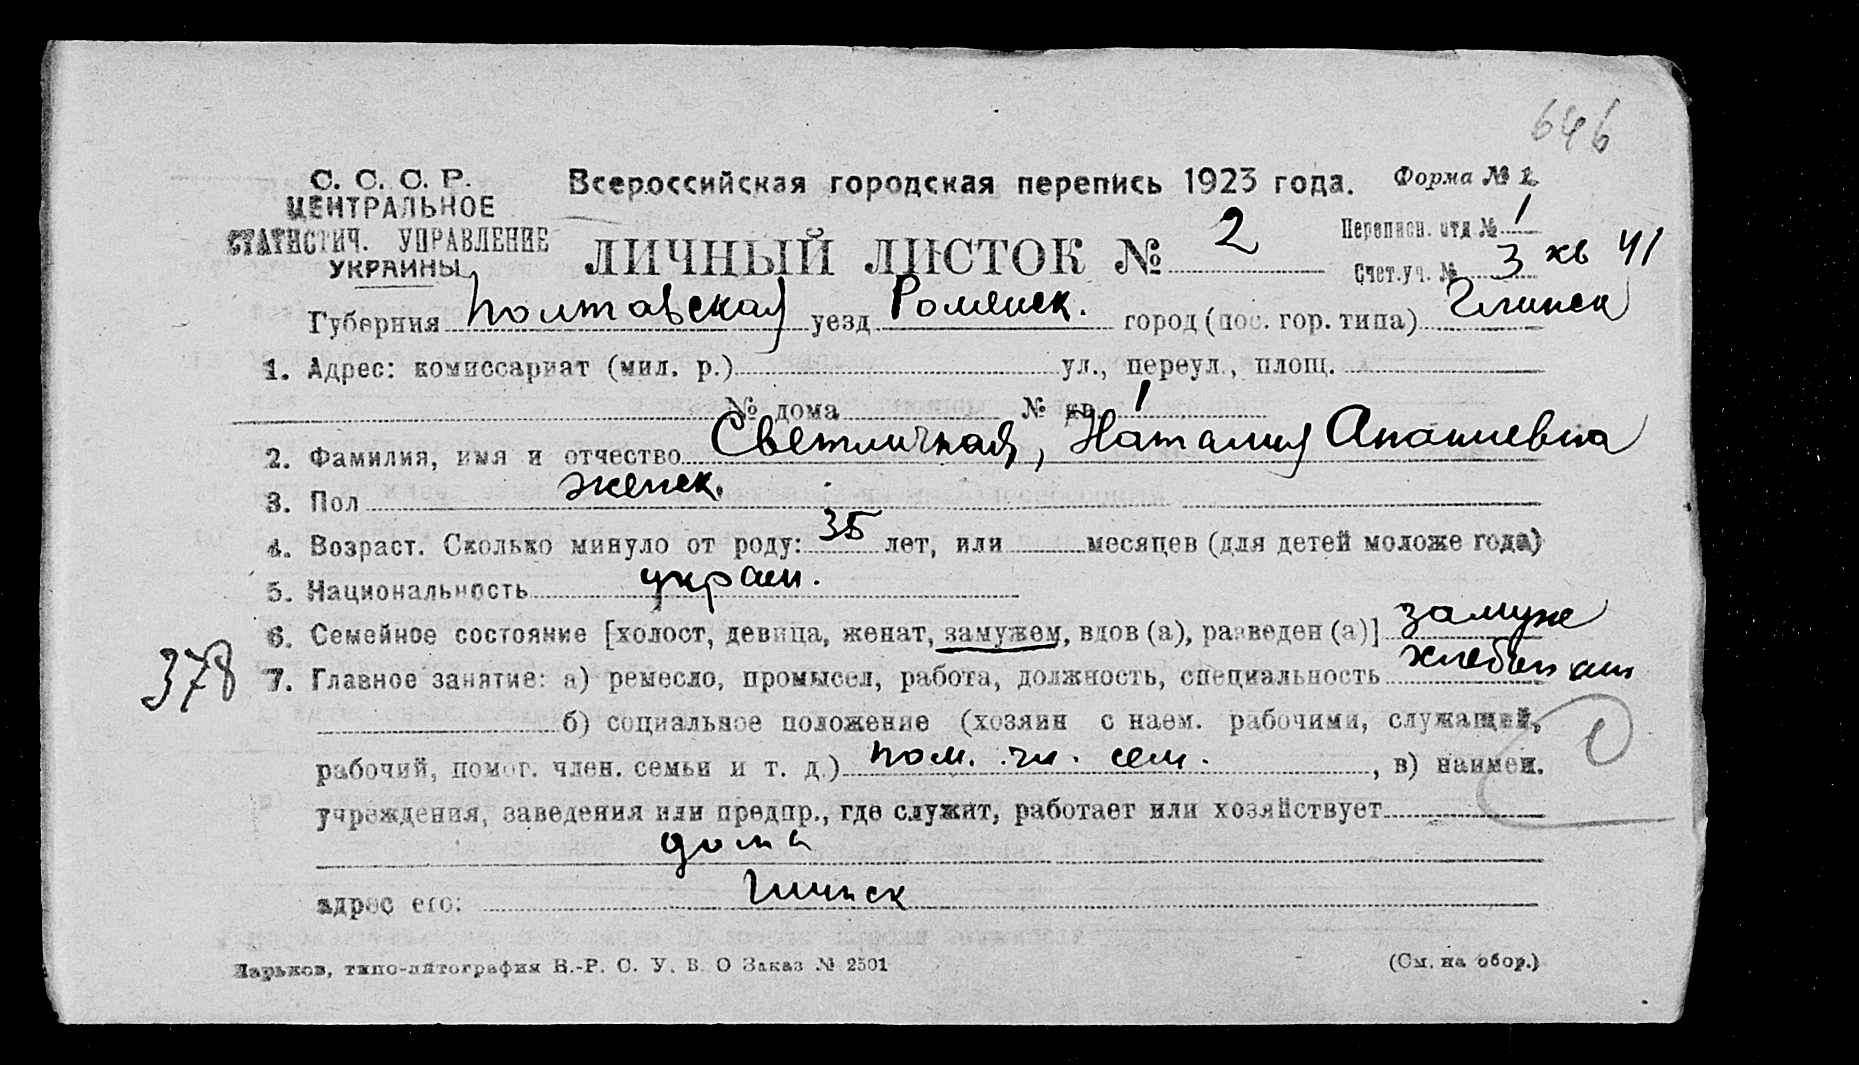 646
С. С. С. Р.
ЦЕНТРАЛЬНОЕ
СТАТИСТИЧ. УПРАВЛЕНИЕ
УКРАИНЫ
Всероссийская городская перепись 1923 года.
Форма № 1
ЛИЧНЫЙ ЛИСТОК № 2
Переписн. отд № 1
Счет.уч. № 3 хв 41
Губерния Полтавская уезд Роменск. город (пос. гор. типа) Глинск
1. Адрес: комиссариат (мил. р.) ул., переул., площ.
№ дома № кв. 1
2. Фамилия, имя и отчество Светличная, Наталия Ананиевна
3. Пол женск.
4. Возраст. Сколько минуло от роду: 35 лет, или месяцев (для детей моложе года)
5. Национальность украин.
6. Семейное состояние [холост, девица, женат, замужем, вдов (а), разведен (а)] замуже
378
7. Главное занятие: а) ремесло, промысел, работа, должность, специальность
б) социальное положение (хозяин с наем. рабочими, служащий,
рабочий, помог. член. семьи и т. д.) пом. чл. сем. , в) наимен.
учреждения, заведения или предпр., где служит, работает или хозяйствует
дома
адрес его: Глинск
Харьков, типо-литография В.-Р. С. У. В. О Заказ № 2501
(См. на обор.)